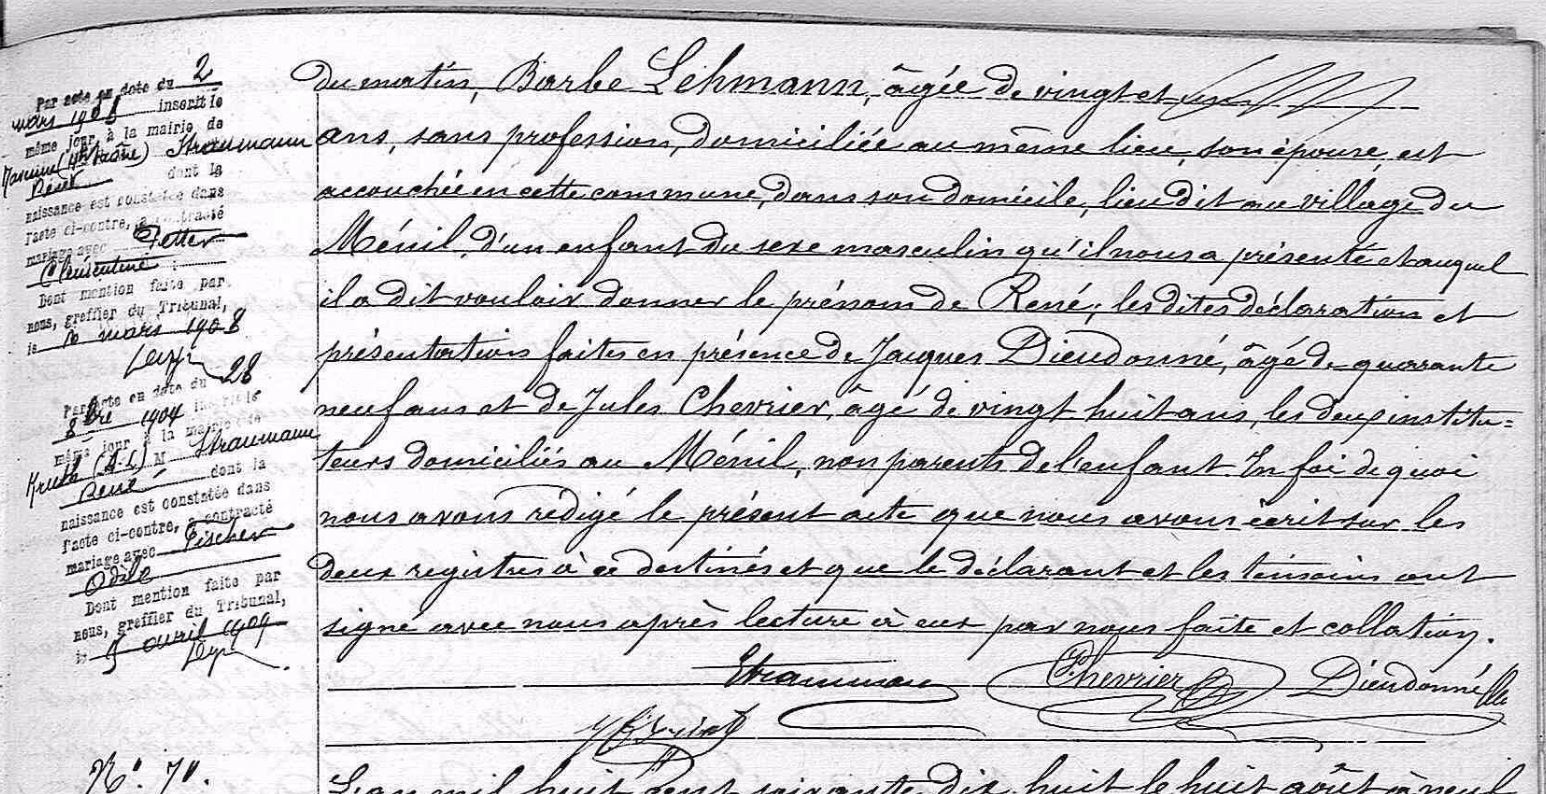 Par acte en date du 2
mars 1908 inscrit le
même jour à la mairie de
(Hte Saône) Straumann
René dont la
naissance est constatée dans
l'acte ci-contre, a contracté
mariage avec Fetter
Clémentine
Dont mention faite par
nous, greffier du Tribunal,
le 10 mars 1908
Par acte en date du 28
8bre 1904 inscrit le
même jour à la mairie de
Kruth (A-L) M Straumann
René dont la
naissance est constatée dans
l'acte ci-contre, a contracté
mariage avec Fischer
Odile
Dont mention faite par
nous, greffier du Tribunal,
le 5 avril 1909
du matin, Barbe Lehmann, âgée de vingt et un
ans, sans profession, domiciliée au même lieu, son épouse, est
accouchée en cette commune, dans son domicile, lieu dit au village du
Ménil, d'un enfant du sexe masculin qu'il nous a présenté et auquel
il a dit vouloir donner le prénom de René; les dites déclaration et
présentation faites en présence de Jacques Dieudonné, âgé de quarante
neuf ans et de Jules Chevrier, âgé de vingt huit ans, les deux institu=
teurs domiciliés au Ménil, non parents de l'enfant. En foi de quoi
nous avons rédigé le présent acte que nous avons écrit sur les
deux registres à ce destinés et que le déclarant et les témoins ont
signé avec nous après lecture à eux par nous faite et collation.
Straumann Chevrier Dieudonné
N° 70.
L'an mil huit cent soixante dix huit le huit août à neuf